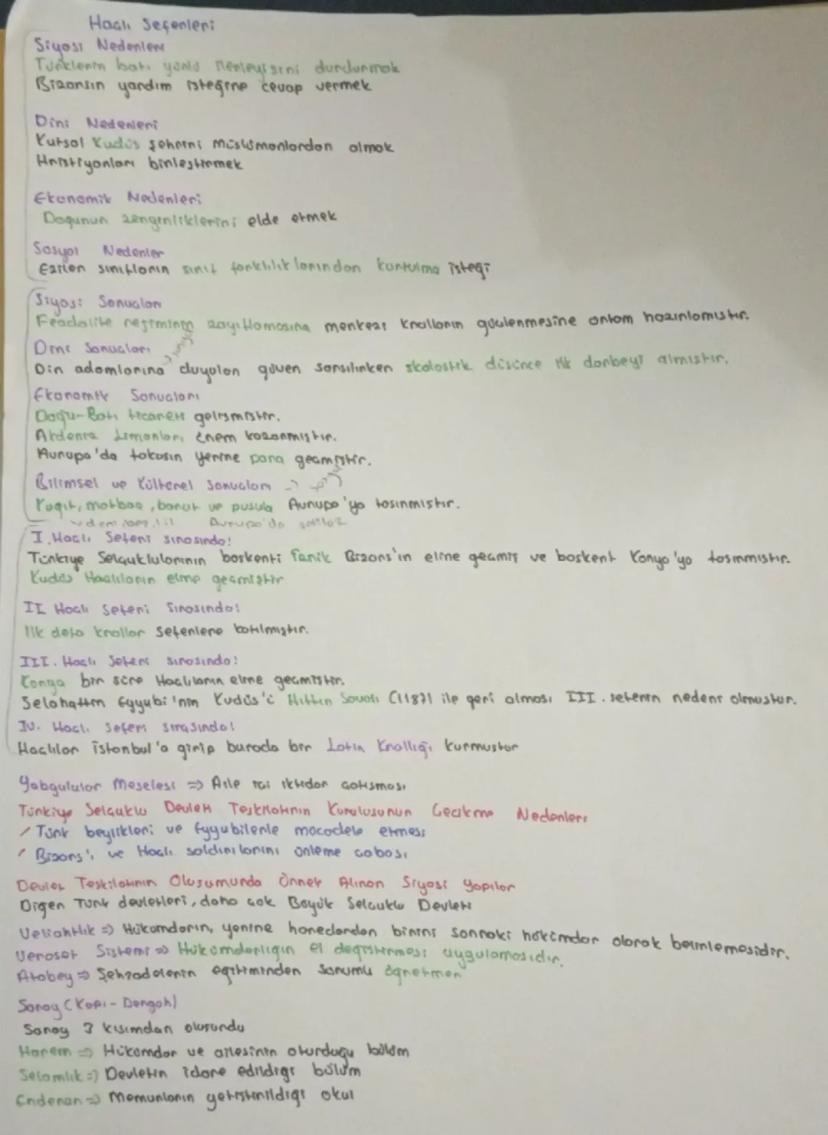 Haçlı Seferleri
Siyasi Nedenleri
Türklerin batı yönlü ilerleyişini durdurmak
Bizansın yardım isteğine cevap vermek
Dini Nedenleri
Kutsal Kudüs şehrini Müslümanlardan almak
Hristiyanları birleştirmek
Ekonomik Nedenleri
Doğunun zenginliklerini elde etmek
Sosyal Nedenler
Ezilen sınıfların sınıf farklılıklarından kurtulma isteği
Siyasi Sonuçları
Feodalite rejiminin zayıflamasına merkezi kralların güçlenmesine ortam hazırlamıştır.
Dini Sonuçları
Din adamlarına duyulan güven sarsılırken skolastik düşünce ilk darbeyi almıştır.
Ekonomik Sonuçları
Doğu-Batı ticareti gelişmiştir.
Akdeniz Limanları önem kazanmıştır.
Avrupa'da takasın yerine para geçmiştir.
Bilimsel ve Kültürel Sonuçları
Kağıt, matbaa, barut ve pusula Avrupa'ya taşınmıştır.
I. Haçlı Seferi sırasında!
Türkiye Selçuklularının başkenti İznik Bizans'ın eline geçmiş ve başkent Konya'ya taşınmıştır.
Kudüs Haçlıların eline geçmiştir
II Haçlı Seferi Sırasında!
İlk defa krallar seferlere katılmıştır.
III. Haçlı Seferi sırasında!
Konya bir süre Haçlıların eline geçmiştir.
Selahattin Eyyubi'nin Kudüs'ü Hittin Savaşı (1187) ile geri alması III. seferin nedeni olmuştur.
IV. Haçlı Seferi sırasında!
Haçlılar İstanbul'a girip burada bir Latin Krallığı kurmuştur
Yabgulular Meselesi => Aile içi iktidar çatışması
Türkiye Selçuklu Devleti Teşkilatının Kuruluşunun Gecikme Nedenleri
/ Türk beylikleri ve Eyyubilerle mücadele etmesi
/ Bizans'ı ve Haçlı saldırılarını önleme çabası
Devlet Teşkilatının Oluşumunda Örnek Alınan Siyasi Yapılar
Diğer Türk devletleri, daha çok Büyük Selçuklu Devleti
Veliahtlık => Hükümdarın, yerine hanedandan birini sonraki hükümdar olarak belirlemesidir.
Veraset Sistemi => Hükümdarlığın el değiştirmesi uygulamasıdır.
Atabey => Şehzadelerin eğitiminden sorumlu öğretmen
Saray (Kapı-Dergah)
Saray 3 kısımdan oluşurdu
Harem => Hükümdar ve ailesinin oturduğu bölüm
Selamlık => Devletin idare edildiği bölüm
Enderun => Memurların yetiştirildiği okul